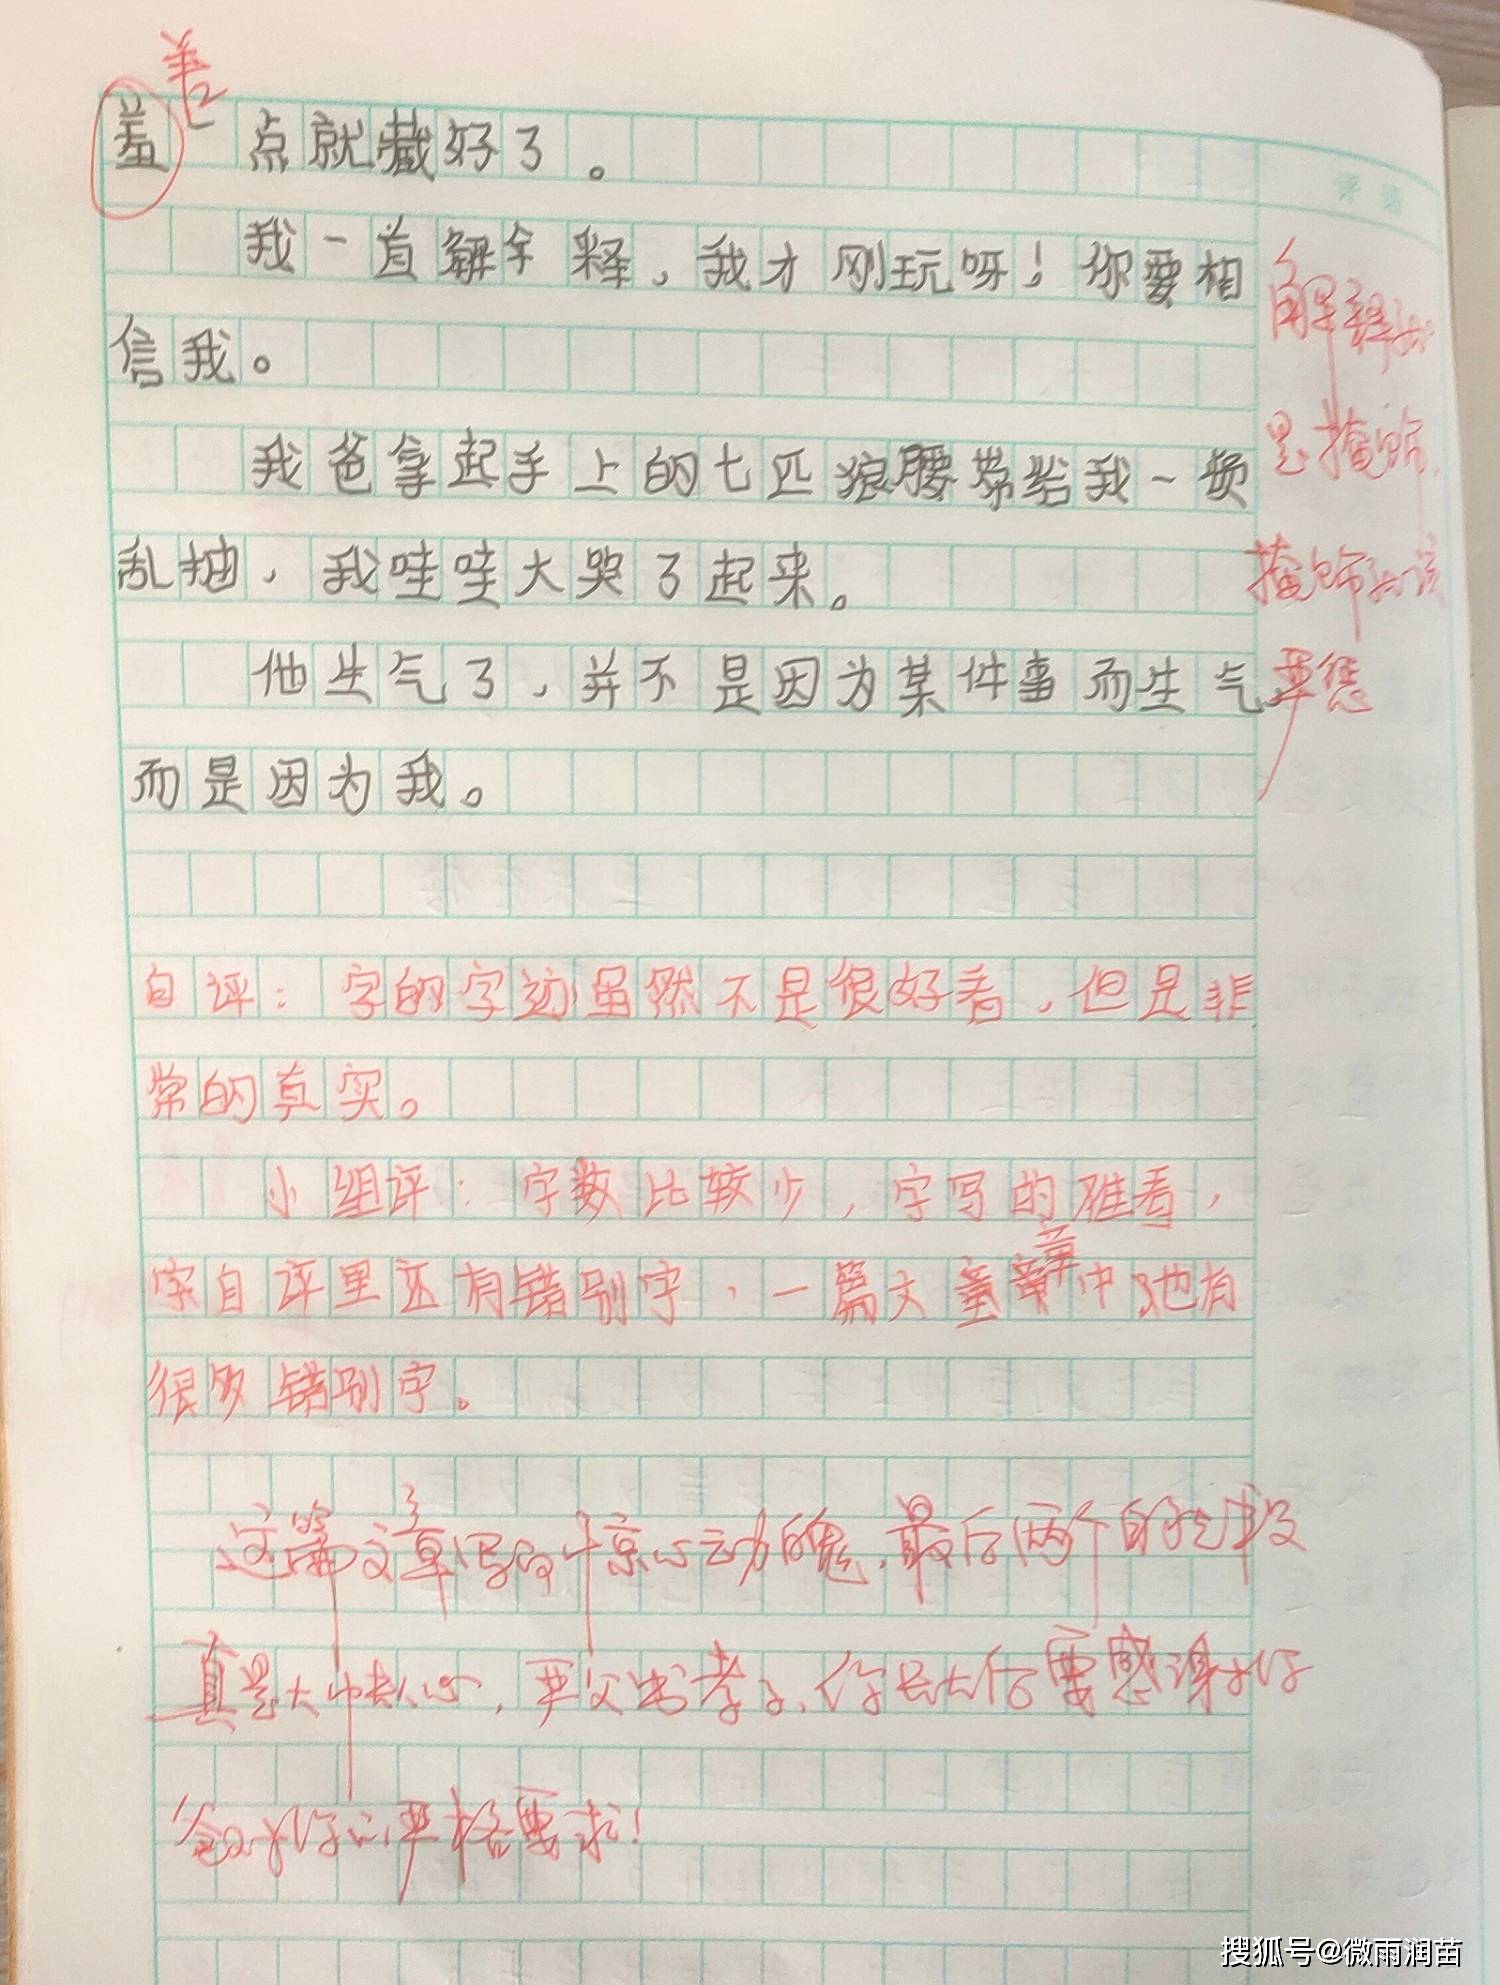 差
羞一点就藏好了。
评语
我一直解释，我才刚玩呀！你要相
信我。
我爸拿起手上的七匹狼腰带给我一顿
乱抽，我哇哇大哭了起来。
他生气了，并不是因为某件事而生气
而是因为我。
解释就
是掩饰，
掩饰就该
严惩
自评：字的字迹虽然不是很好看，但是非
常的真实。
小组评：字数比较少，字写的难看，
字自评里还有错别字，一篇文章中也有
很多错别字。
这篇文章写得惊心动魄，最后两个自然段
真是大快人心，严父出孝子，你长大后要感谢你
爸对你的严格要求！
搜狐号@微雨润苗